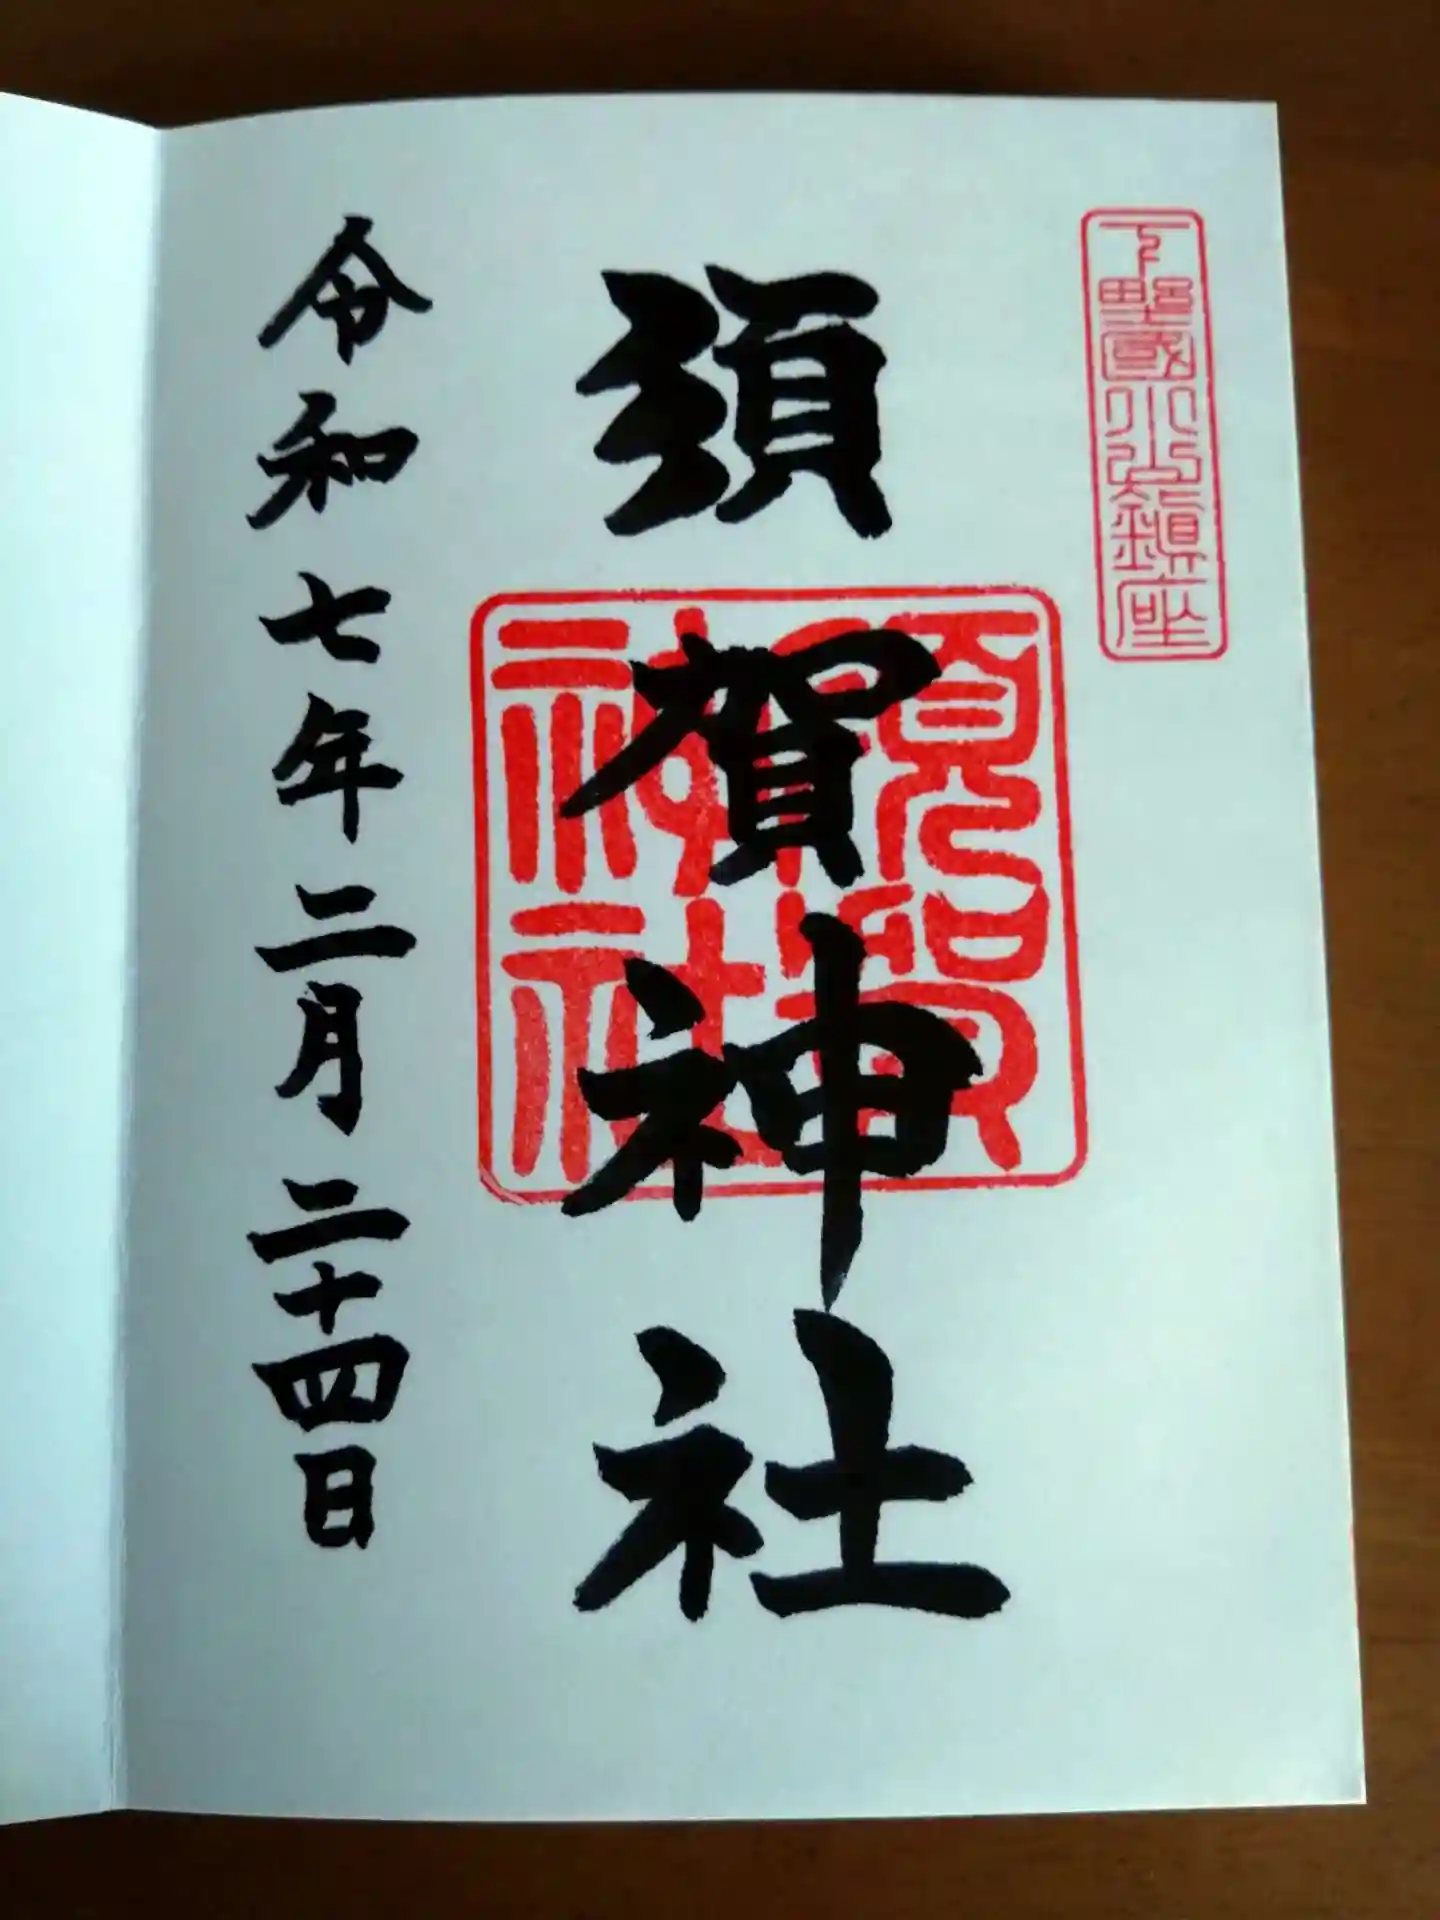 下野國小山鎮座
須賀神社
須賀
神社
令和七年二月二十四日